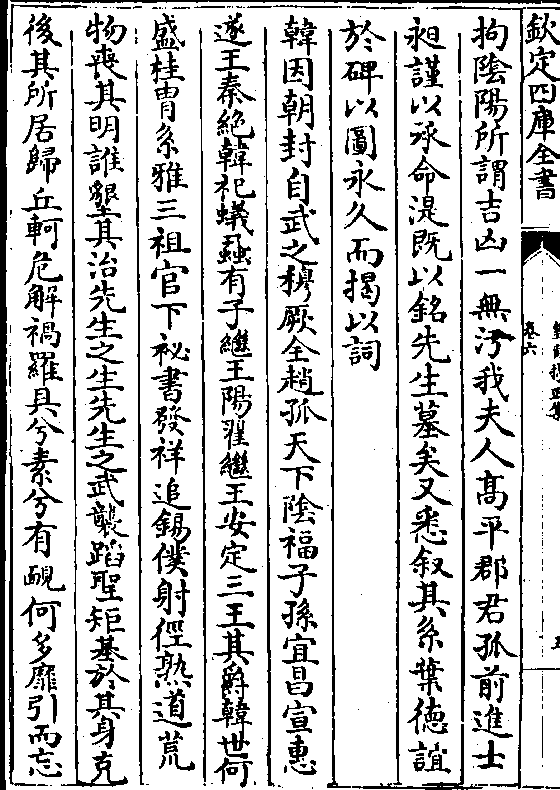 欽定四庫全書
卷六
拘陰陽所謂吉凶一無汚我夫人髙平郡君孤前進士
昶謹以承命湜既以銘先生墓矣又悉叙其系葉徳誼
於碑以圖永久而掲以詞
韓因朝封自武之穆厥全趙孤天下隂福子孫宜昌宣惠
遂王秦絶韓祀蟻蝨有子繼王陽翟繼王安定三王其爵韓世何
盛桂胄系雅三祖官下袐書發祥追錫僕射徑熟道荒
物喪其明誰墾其治先生之生先生之武襲蹈聖矩基於其身克
後其所居歸丘軻危解禍羅具兮素兮有覶何多靡引而忘